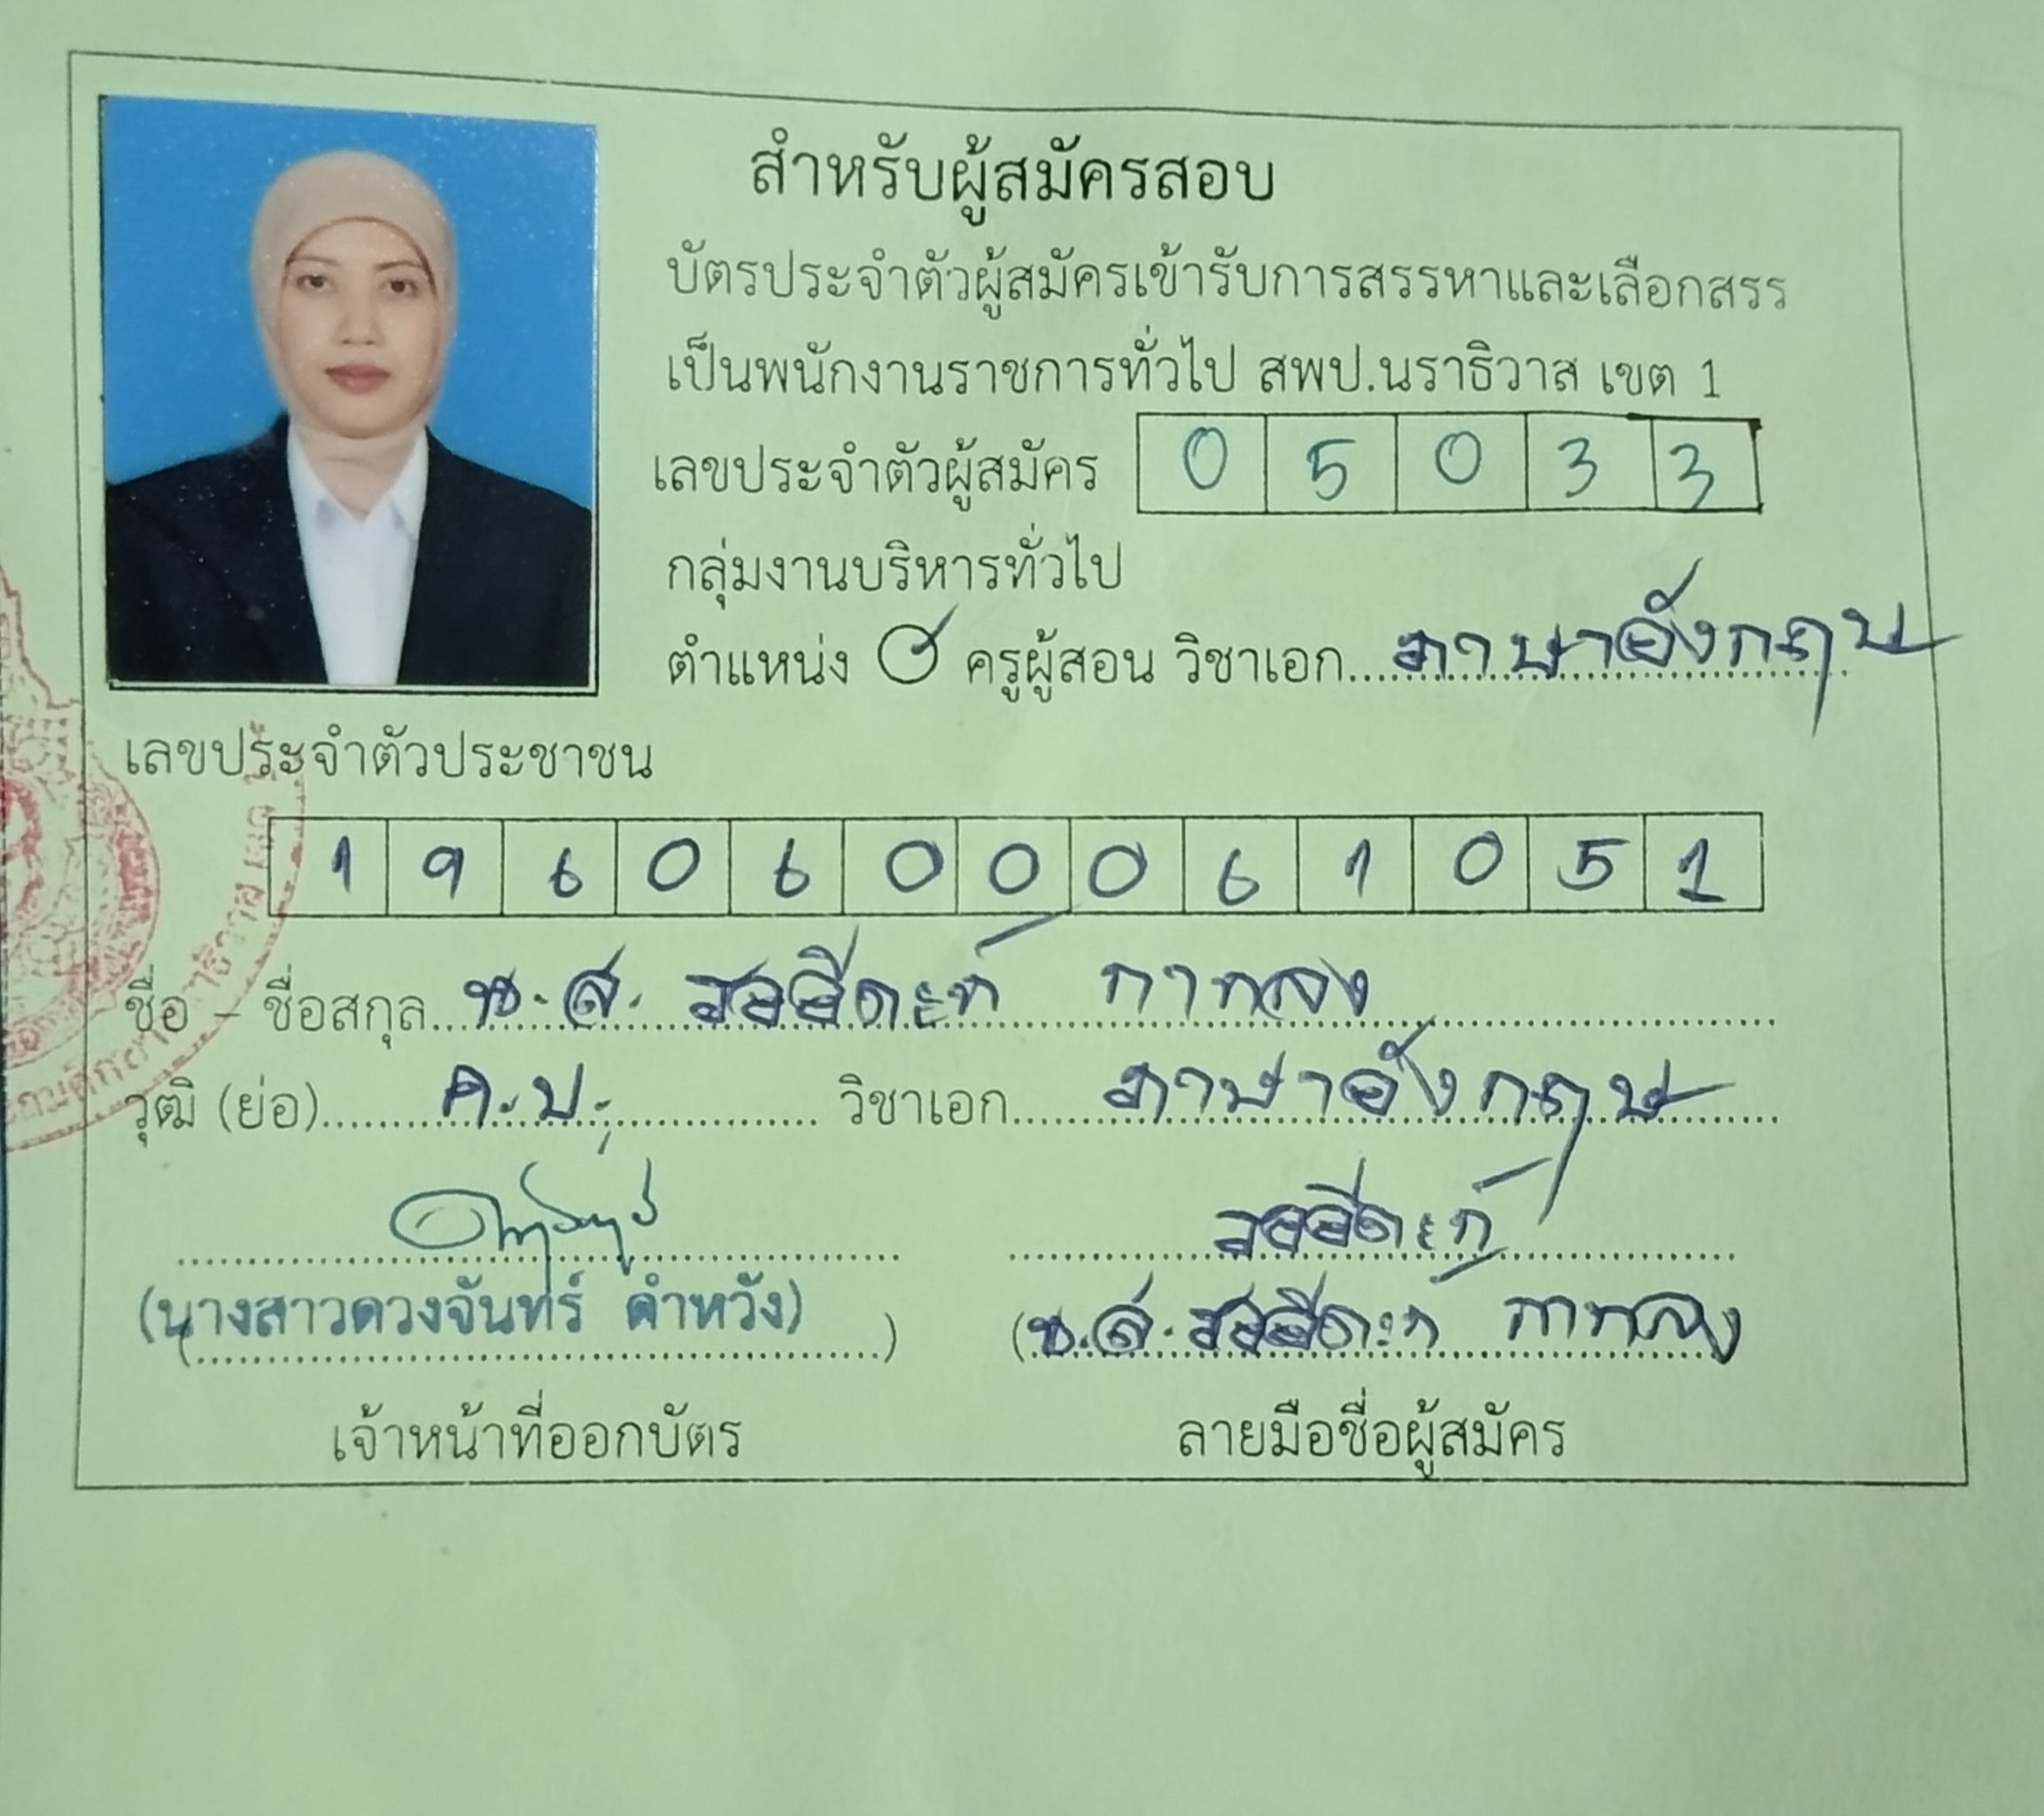 สำหรับผู้สมัครสอบ
บัตรประจำตัวผู้สมัครเข้ารับการสรรหาและเลือกสรร
เป็นพนักงานราชการทั่วไป สพป.นราธิวาส เขต 1
เลขประจำตัวผู้สมัคร 0 5 0 3 3
กลุ่มงานบริหารทั่วไป
ตำแหน่ง ครูผู้สอน วิชาเอก ภาษาอังกฤษ
เลขประจำตัวประชาชน
1 9 6 0 6 0 0 0 6 1 0 5 1
ชื่อ - ชื่อสกุล น.ส.
วุฒิ (ย่อ) ค.บ. วิชาเอก ภาษาอังกฤษ
(นางสาวดวงจันทร์ คำหวัง)
(น.ส.
เจ้าหน้าที่ออกบัตร ลายมือชื่อผู้สมัคร